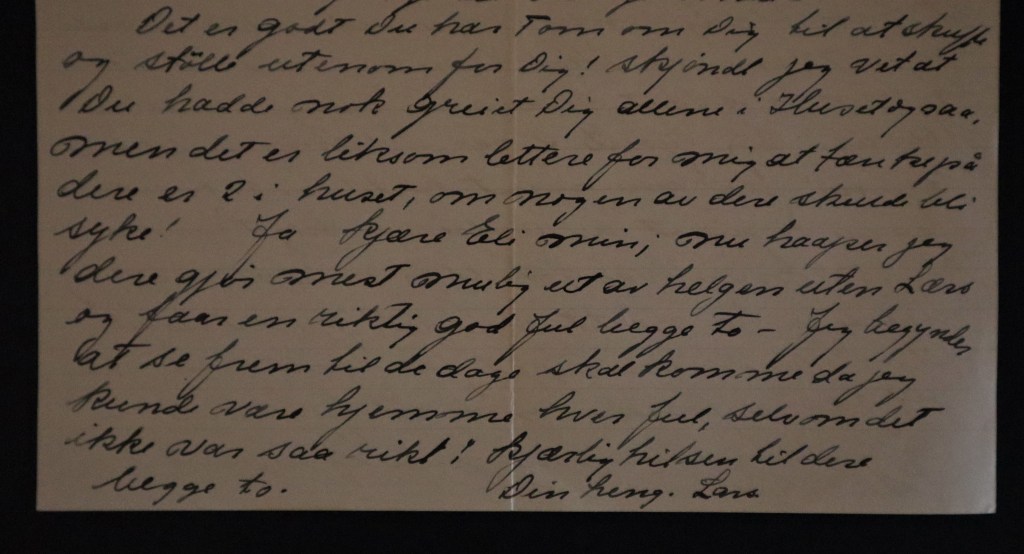 Det er godt Du har Tom om Dig til at skuffe
og stölle utenom for Dig! skjöndt jeg vet at
Du hadde nok greiet Dig allene i Huset ogsaa,
men det er liksom lettere for mig at tænke på
dere er 2 i huset, om nogen av dere skulde bli
syke! Ja kjære Eli min; nu haaper jeg
dere gjör mest mulig ut av helgen uten Lars
og faar en riktig god Jul begge to – Jeg begynder
at se frem til de dage skal komme da jeg
kunde være hjemme hver Jul, selv om det
ikke var saa rikt! Kjærlig hilsen til dere
begge to. Din heng. Lars